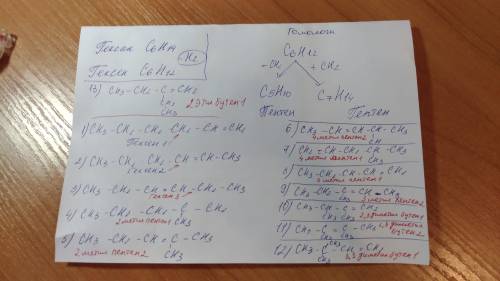 Гексан C6H14
H2
Гексен C6H12
13) CH3-CH2-C=CH2
CH2
CH3
2 этил бутен 1
1) CH3-CH2-CH2-CH2-CH=CH2
Гексен 1
2) CH3-CH2 CH2 CH=CH-CH3
Гексен 2
3) CH3-CH2-CH=CH-CH2-CH3
Гексен 3
4) CH3-CH2-CH2-C-CH2
2 метил пентен 1
CH3
5) CH3-CH2-CH=C-CH3
2 метил пентен 2
CH3
Гомологи
C6H12
-CH2 +CH2
C5H10 C7H14
Пентен Гептен
6) CH3-CH=CH-CH-CH3
4 метил пентен 2
7) CH2=CH-CH2-CH-CH3
4 метил пентен 1
8) CH3-CH2-CH-CH=CH2
3 метил пентен 1
9) CH3-CH2-C=CH-CH3
3 метил пентен 2
10) CH3-CH-C=CH2
CH3 CH3
2,3 диметил бутен 1
11) CH3-C=C-CH3
CH3 CH3
2,3 диметил
бутен 2
12) CH3-C-CH=CH2
CH3
CH3
3,3 диметил бутен 1